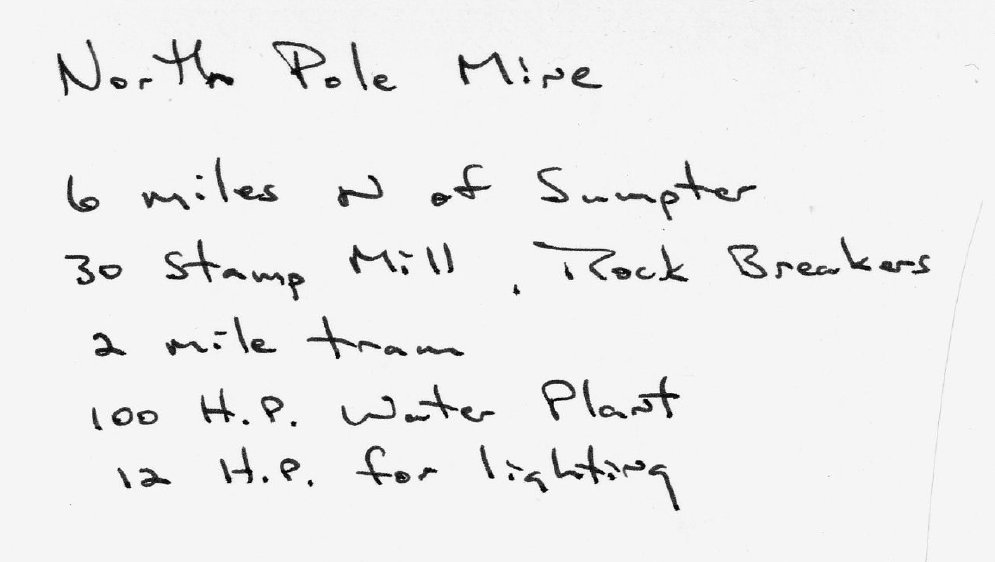 North Pole Mine
6 miles N of Sumpter
30 Stamp Mill, Rock Breakers
2 mile tram
100 H.P. Water Plant
12 H.P. for lighting